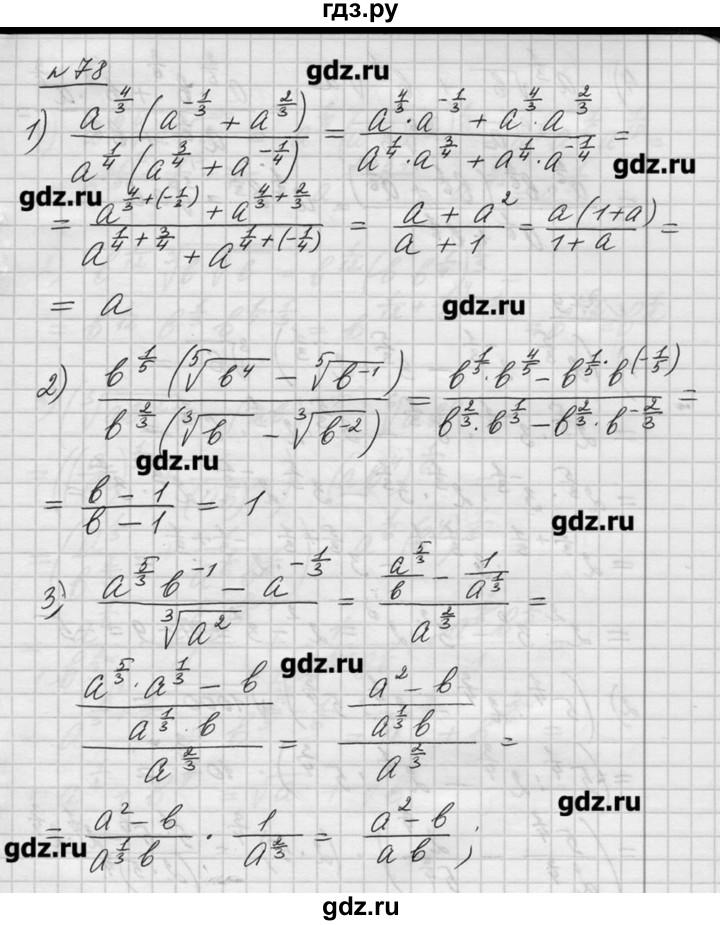 гдз.ру
№78
gdz.ru
1) a^{4/3}(a^{-1/3} + a^{2/3}) / a^{1/4}(a^{3/4} + a^{-1/4}) = a^{4/3}·a^{-1/3} + a^{4/3}·a^{2/3} / a^{1/4}·a^{3/4} + a^{1/4}·a^{-1/4} =
gdz.ru
gdz.ru
= a^{4/3+(-1/3)} + a^{4/3+2/3} / a^{1/4+3/4} + a^{1/4+(-1/4)} = a + a² / a + 1 = a(1+a) / 1+a =
= a
gdz.ru
2) b^{1/5}(⁵√b⁴ − ⁵√b⁻¹) / b^{2/3}(³√b − ³√b⁻²) = b^{1/5}·b^{4/5} − b^{1/5}·b^{(-1/5)} / b^{2/3}·b^{1/3} − b^{2/3}·b^{-2/3} =
gdz.ru
= b − 1 / b − 1 = 1
gdz.ru
3) a^{5/3}b⁻¹ − a^{-1/3} / ³√a² = (a^{5/3}/b − 1/a^{1/3}) / a^{2/3} =
gdz.ru
((a^{5/3}·a^{1/3} − b) / (a^{1/3}·b)) / a^{2/3} = ((a² − b) / (a^{1/3}b)) / a^{2/3} =
gdz.ru
= a² − b / a^{1/3}b · 1 / a^{2/3} = a² − b / ab ;
gdz.ru
gdz.ru